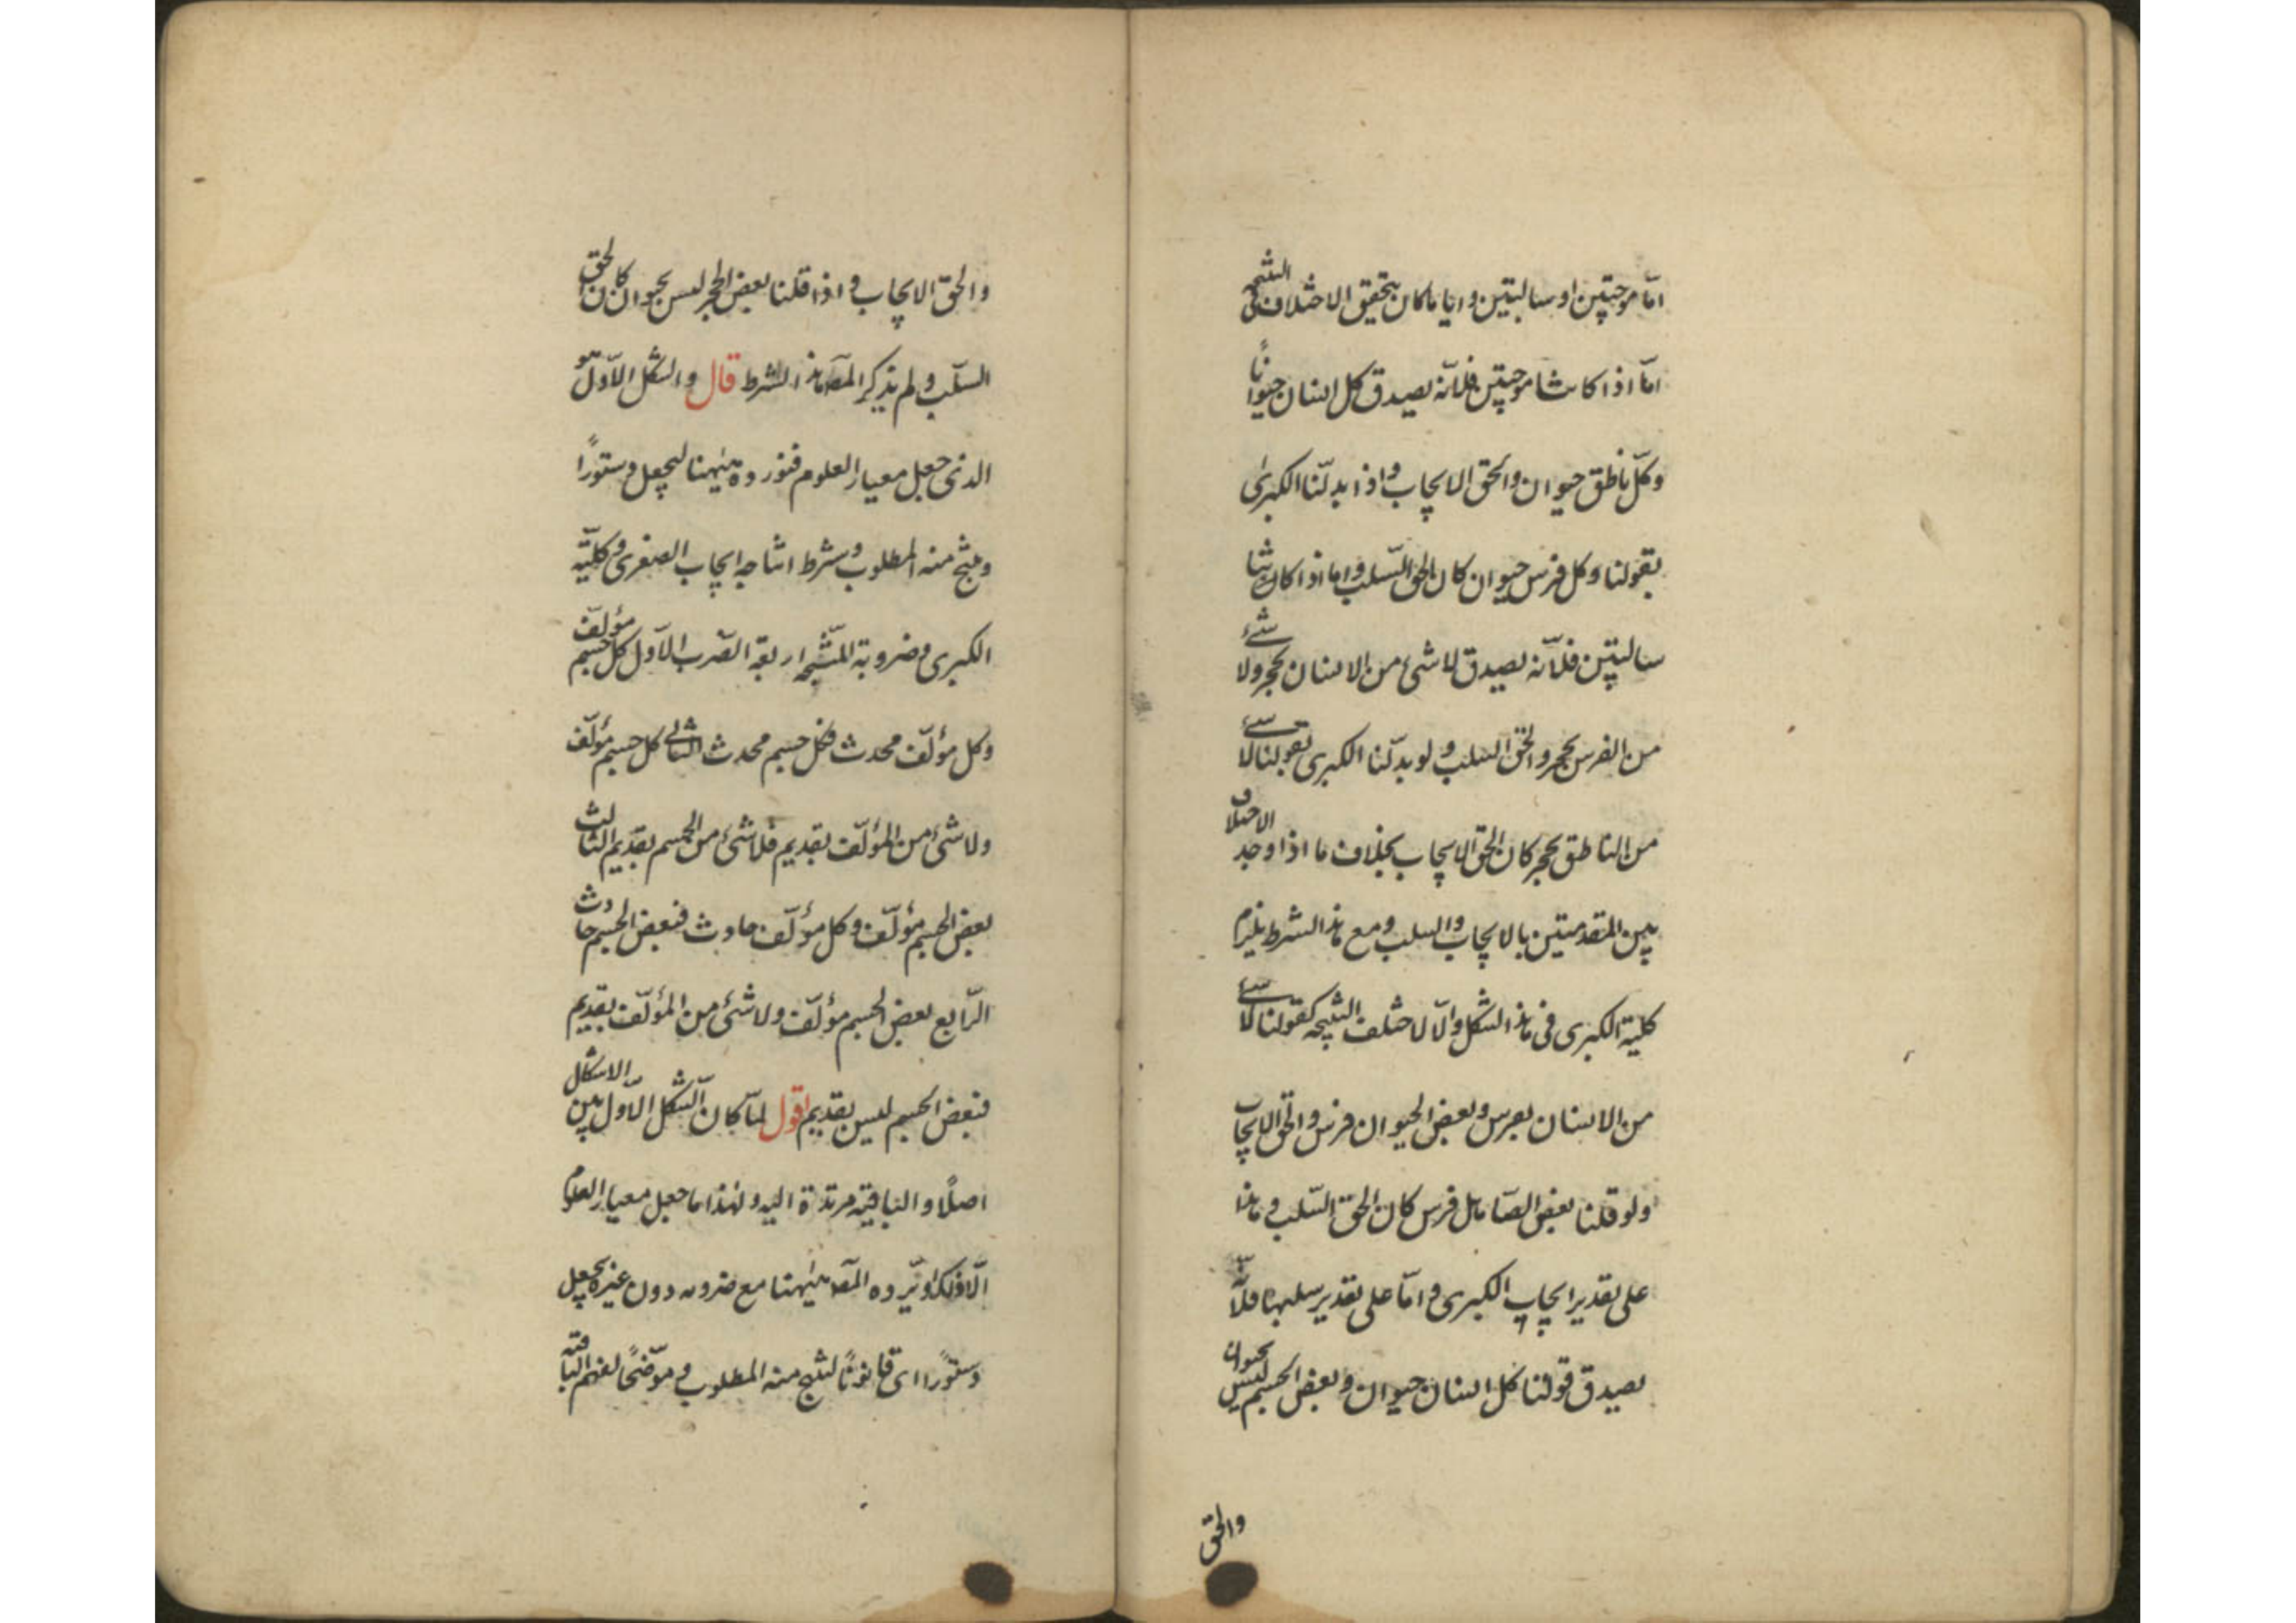 اما موجبتين او سالبتين وايا ما كان يتحقق الاختلاف في النتيجة
امّا اذا كانتا موجبتين فلانّه يصدق كل انسان حيوانًا
وكلّ ناطق حيوان والحق الايجاب واذا بدلنا الكبرى
بقولنا وكل فرس حيوان كان الحق السّلب واما اذا كانتا
سالبتين فلانّه يصدق لا شئ من الانسان بحجر ولا شئ
من الفرس بحجر والحق السلب ولو بدلنا الكبرى بقولنا لا شئ
من الناطق بحجر كان الحق الايجاب بخلاف ما اذا وجد الاختلاف
بين المقدمتين بالايجاب والسلب ومع هذا الشرط يلزم
كلية الكبرى في هذا الشكل والّا لاختلف النتيجة كقولنا لا شئ
من الانسان بفرس وبعض الحيوان فرس والحق الايجاب
ولو قلنا بعض الصّاهل فرس كان الحق السّلب وهذا
على تقدير ايجاب الكبرى وامّا على تقدير سلبها فلانّه
يصدق قولنا كل انسان حيوان وبعض الجسم ليس بحيوان
والحق
والحق الايجاب واذا قلنا بعض الحجر ليس بحيوان كان الحق
السّلب ولم يذكر المص هذا الشرط قال والشكل الاوّل هو
الذى جعل معيار العلوم فنورده هيٰهنا ليجعل دستورًا
وينتج منه المطلوب وشرط انتاجه ايجاب الصغرى وكليّة
الكبرى وضروبه المنتجة اربعة الضّرب الاوّل كل جسم مؤلّف
وكل مؤلّف محدث فكل جسم محدث الثانى كل جسم مؤلّف
ولا شئ من المؤلّف بقديم فلا شئ من الجسم بقديم الثالث
بعض الجسم مؤلّف وكل مؤلّف حادث فبعض الجسم حادث
الرّابع بعض الجسم مؤلّف ولا شئ من المؤلّف بقديم
فبعض الجسم ليس بقديم اقول لمّا كان الشكل الاوّل بين الاشكال
اصلًا والباقية مرتدة اليه ولهذا ما جعل معيار العلوم
الّا ذلك اورده المص هيٰهنا مع ضروبه دون غيره ليجعل
دستورًا اى قانونًا لينتج منه المطلوب وموضحًا لفهم الباقية